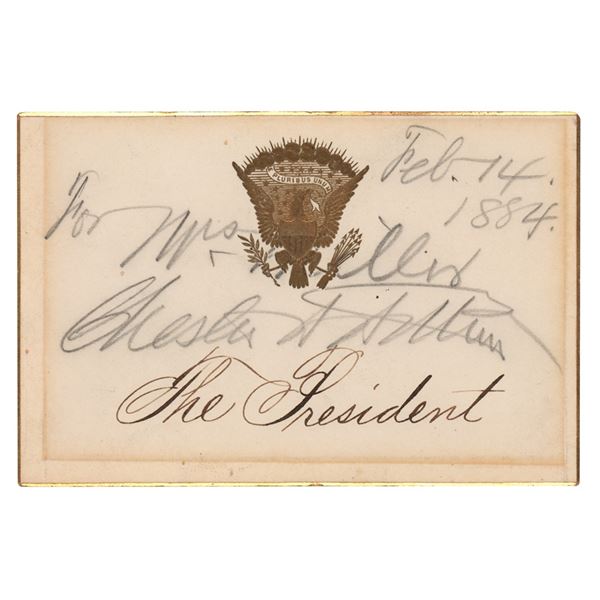 E PLURIBUS UNUM
Feb. 14.
1884.
For Mrs Miller
Chester A Arthur
The President